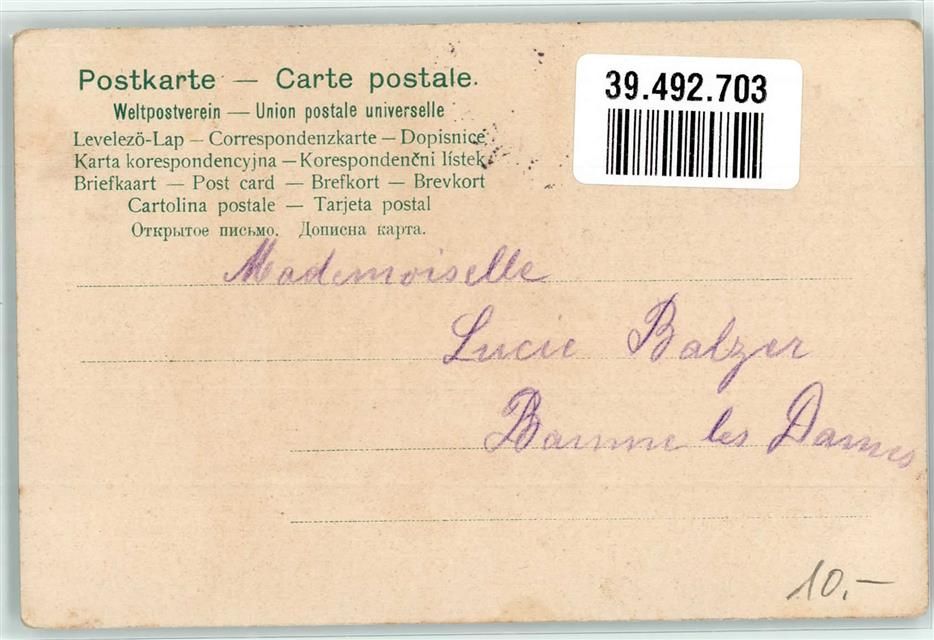 Postkarte — Carte postale.
Weltpostverein — Union postale universelle
Levelezö-Lap — Correspondenzkarte — Dopisnice
Karta korespondencyjna — Korespondenčni lístek
Briefkaart — Post card — Brefkort — Brevkort
Cartolina postale — Tarjeta postal
Открытое письмо. Дописна карта.
39.492.703
Mademoiselle
Lucie Balzer
Baume les Dames
10.—